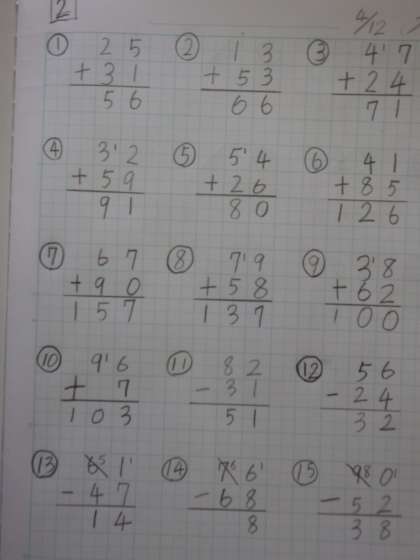 2 4/12
① 25 ② 13 ③ 4'7
+31 +53 +24
56 66 71
④ 3'2 ⑤ 5'4 ⑥ 41
+59 +26 +85
91 80 126
⑦ 67 ⑧ 7'9 ⑨ 3'8
+90 +58 +62
157 137 100
⑩ 9'6 ⑪ 82 ⑫ 56
+ 7 -31 -24
103 51 32
⑬ 6⁵1' ⑭ 7⁶6' ⑮ 9⁸0'
-47 -68 -52
14 8 38